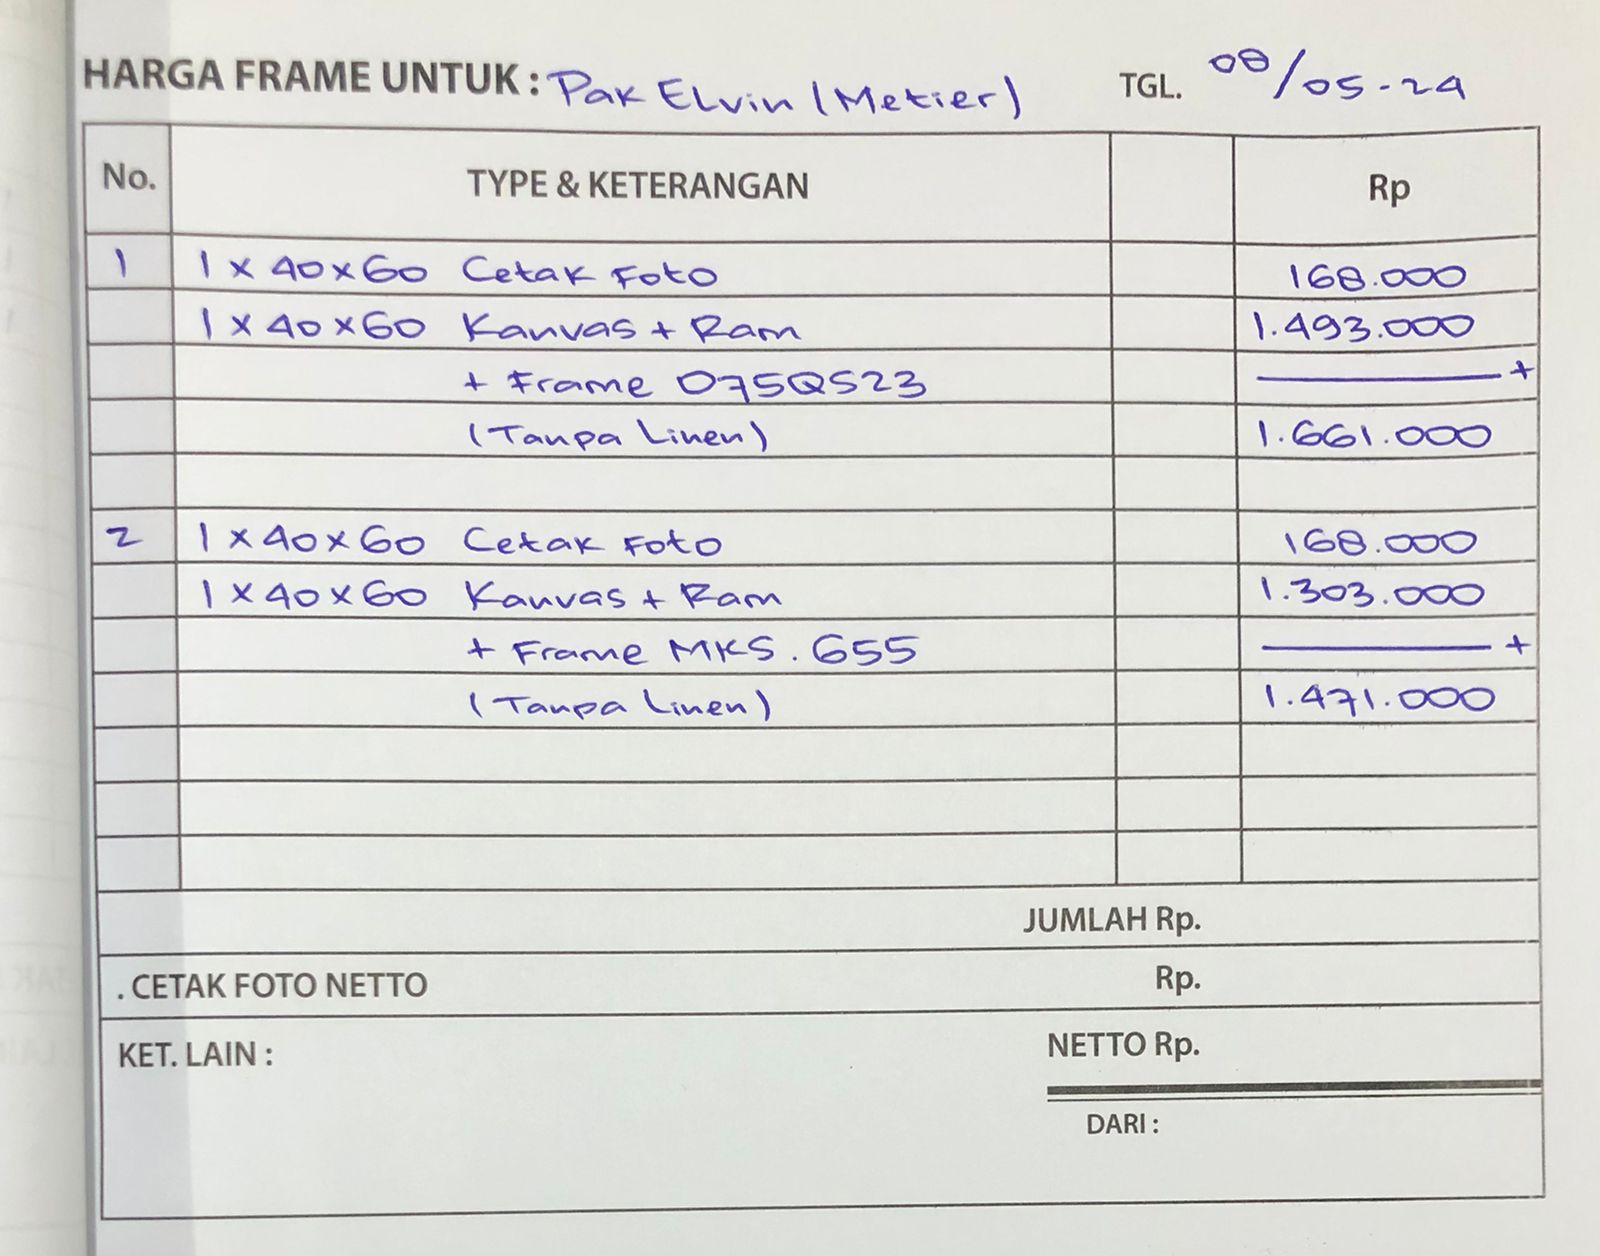 HARGA FRAME UNTUK : Pak Elvin (Metier) TGL. 08/05-24
No. TYPE & KETERANGAN Rp
1 1 x 40 x 60 Cetak Foto 168.000
1 x 40 x 60 Kanvas + Ram 1.493.000
+ Frame 075QS23 +
(Tanpa Linen) 1.661.000
2 1 x 40 x 60 Cetak Foto 168.000
1 x 40 x 60 Kanvas + Ram 1.303.000
+ Frame MKS. 655 +
(Tanpa Linen) 1.471.000
JUMLAH Rp.
. CETAK FOTO NETTO Rp.
KET. LAIN : NETTO Rp.
DARI :